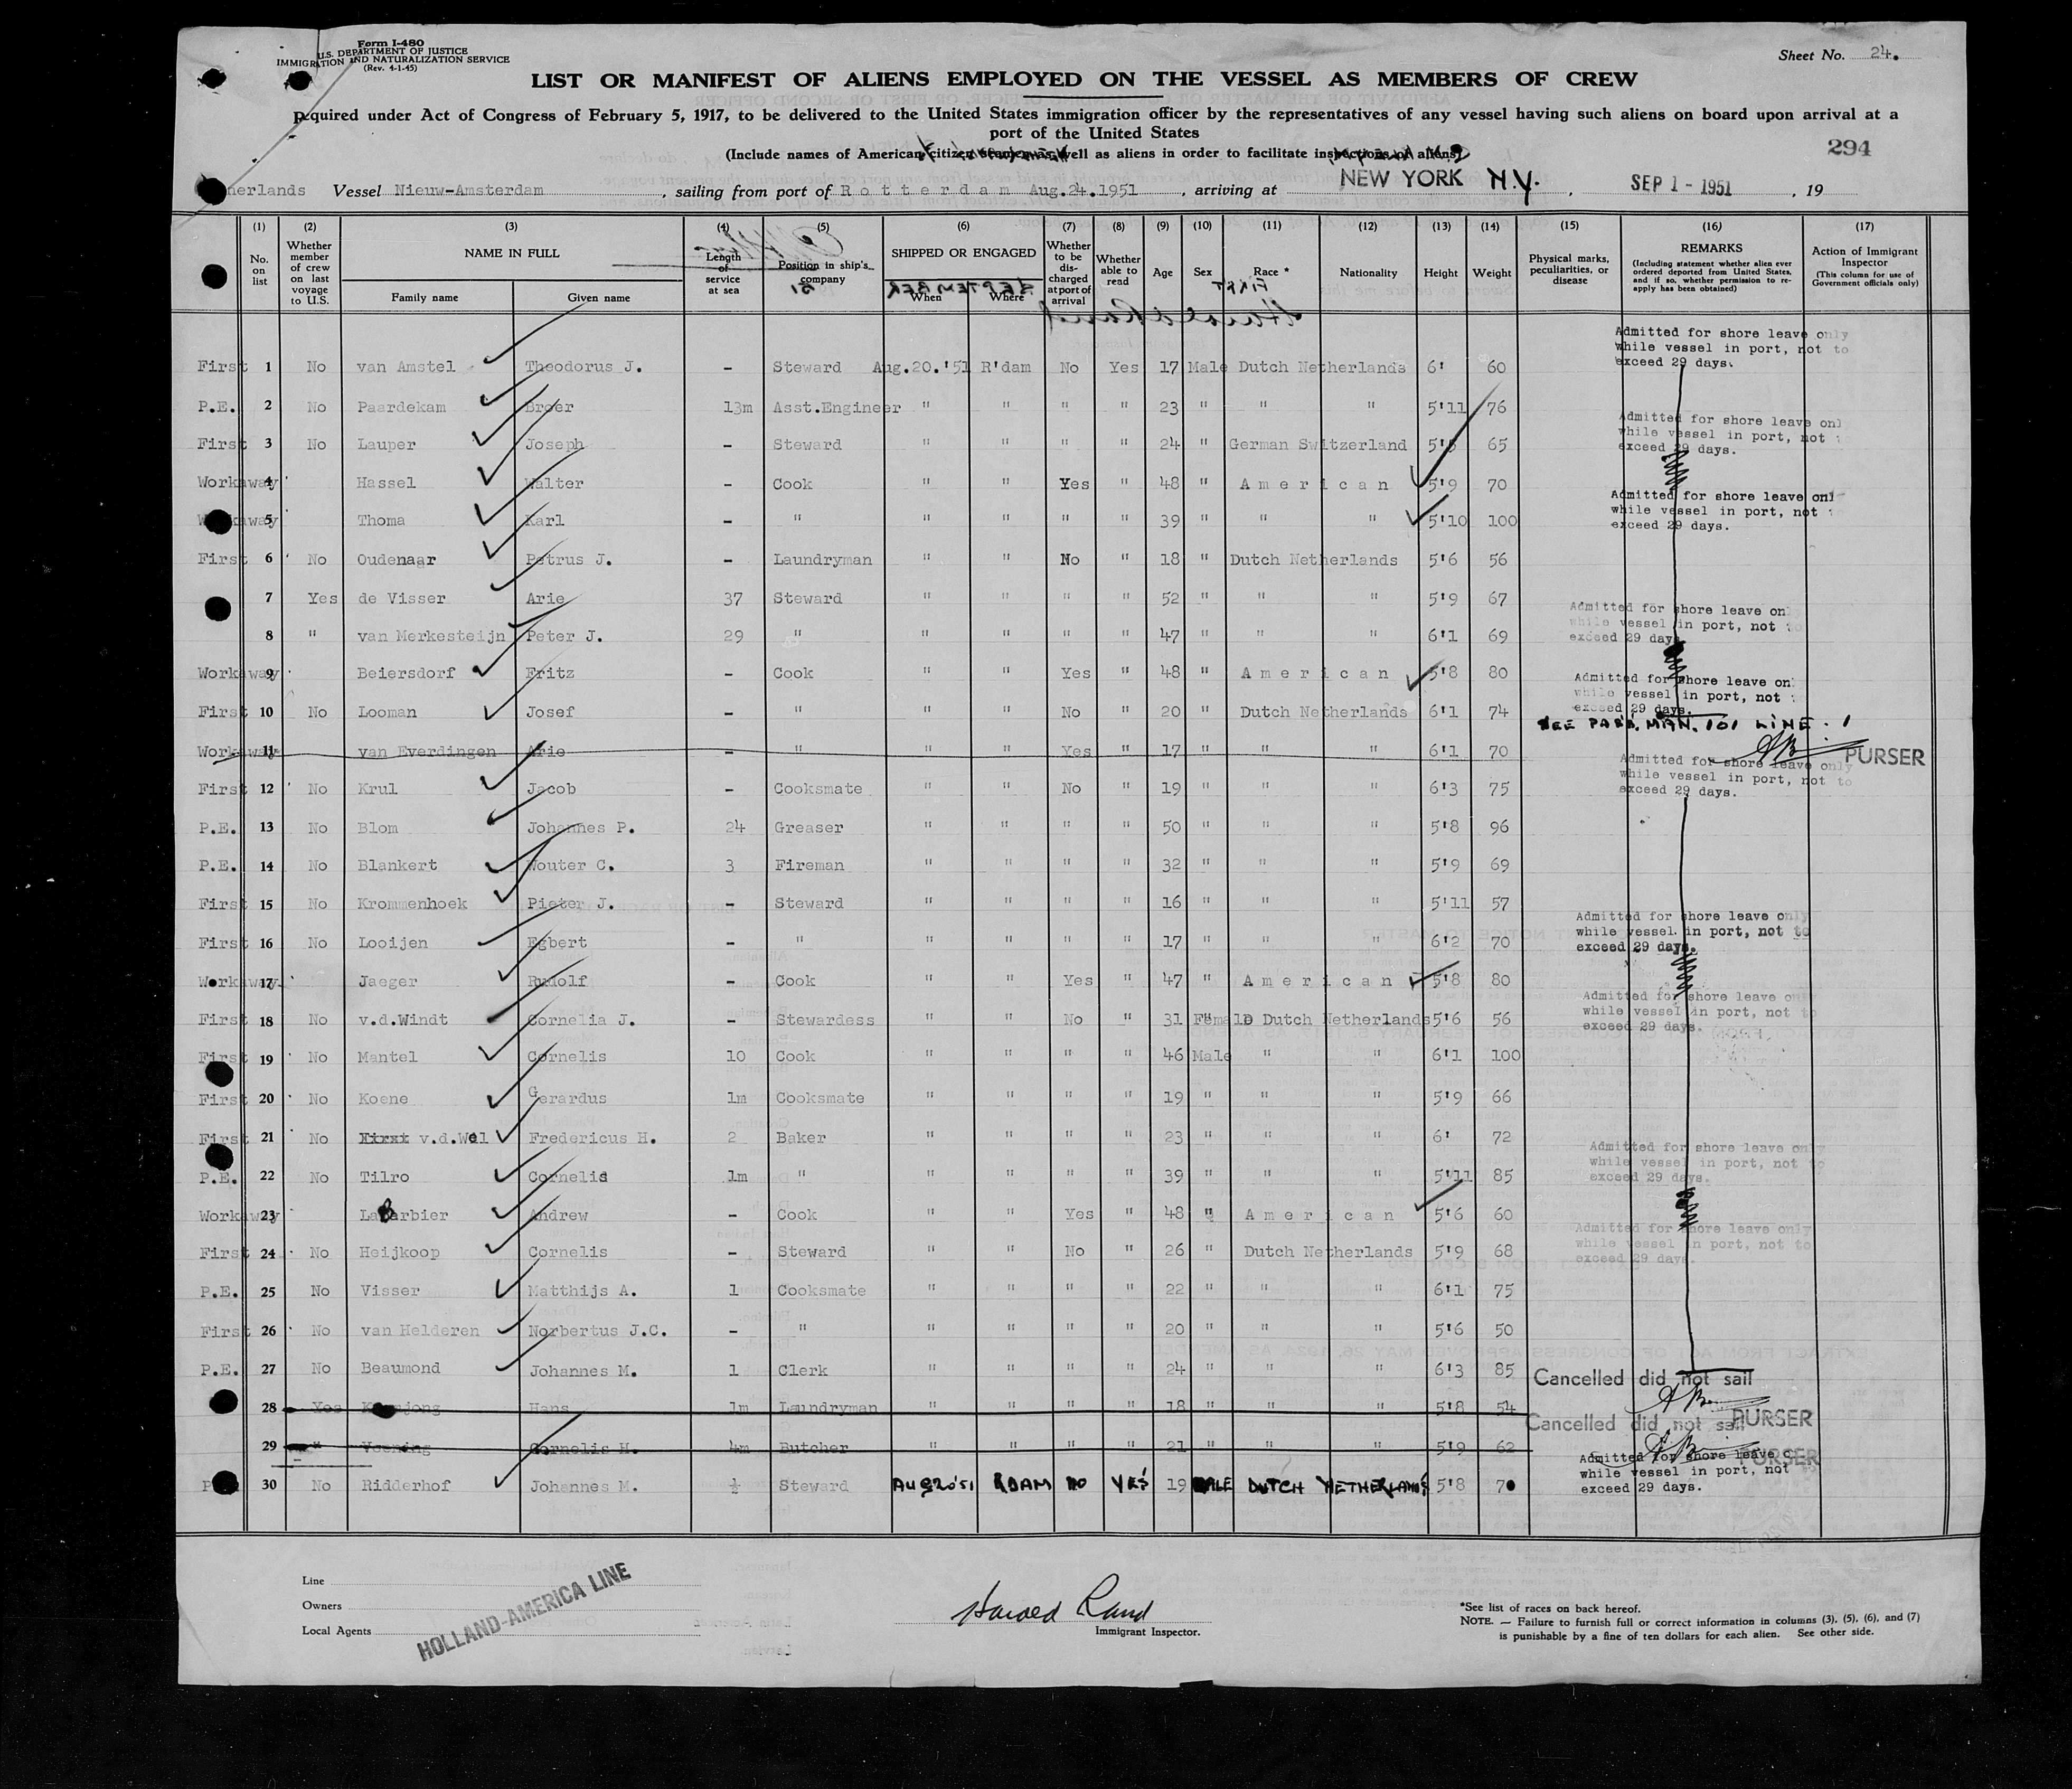 Form I-480
U.S. DEPARTMENT OF JUSTICE
IMMIGRATION AND NATURALIZATION SERVICE
(Rev. 4-1-45)
Sheet No. 24.
LIST OR MANIFEST OF ALIENS EMPLOYED ON THE VESSEL AS MEMBERS OF CREW
Required under Act of Congress of February 5, 1917, to be delivered to the United States immigration officer by the representatives of any vessel having such aliens on board upon arrival at a
port of the United States
(Include names of American citizen seamen as well as aliens in order to facilitate inspection of aliens)
294
herlands Vessel Nieuw-Amsterdam, sailing from port of Rotterdam Aug.24.1951, arriving at NEW YORK N.Y., SEP 1 - 1951, 19
(1) No. on list (2) Whether member of crew on last voyage to U.S. (3) NAME IN FULL Family name Given name (4) Length of service at sea (5) Position in ship's company (6) SHIPPED OR ENGAGED When Where (7) Whether to be discharged at port of arrival (8) Whether able to read (9) Age (10) Sex (11) Race * (12) Nationality (13) Height (14) Weight (15) Physical marks, peculiarities, or disease (16) REMARKS (Including statement whether alien ever ordered deported from United States, and if so, whether permission to reapply has been obtained) (17) Action of Immigrant Inspector (This column for use of Government officials only)
Admitted for shore leave only
while vessel in port, not to
exceed 29 days.
First 1 No van Amstel Theodorus J. - Steward Aug.20.'51 R'dam No Yes 17 Male Dutch Netherlands 6' 60
P.E. 2 No Paardekam Broer 13m Asst.Engineer " " " " 23 " " " 5'11 76
Admitted for shore leave onl
while vessel in port, not
exceed 29 days.
First 3 No Lauper Joseph - Steward " " " " 24 " German Switzerland 65
Workaway 4 Hassel Walter - Cook " " Yes " 48 " American 5'9 70
Admitted for shore leave onl
while vessel in port, not
exceed 29 days.
Workaway 5 Thoma Karl - " " " " " 39 " " " 5'10 100
First 6 No Oudenaar Petrus J. - Laundryman " " No " 18 " Dutch Netherlands 5'6 56
7 Yes de Visser Arie 37 Steward " " " " 52 " " " 5'9 67
Admitted for shore leave on
while vessel in port, not
exceed 29 days
8 " van Merkesteijn Peter J. 29 " " " " " 47 " " " 6'1 69
Workaway 9 Beiersdorf Fritz - Cook " " Yes " 48 " American 5'8 80
Admitted for shore leave on
while vessel in port, not
exceed 29 days.
First 10 No Looman Josef - " " " No " 20 " Dutch Netherlands 6'1 74
SEE PASS. MAN. 101 LINE. 1
Workaway 11 van Everdingen Arie - " " " Yes " 17 " " " 6'1 70 PURSER
Admitted for shore leave only
while vessel in port, not to
exceed 29 days.
First 12 No Krul Jacob - Cooksmate " " No " 19 " " " 6'3 75
P.E. 13 No Blom Johannes P. 24 Greaser " " " " 50 " " " 5'8 96
P.E. 14 No Blankert Wouter C. 3 Fireman " " " " 32 " " " 5'9 69
First 15 No Krommenhoek Pieter J. - Steward " " " " 16 " " " 5'11 57
Admitted for shore leave only
while vessel in port, not to
exceed 29 days.
First 16 No Looijen Egbert - " " " " " 17 " " " 6'2 70
Workaway 17 Jaeger Rudolf - Cook " " Yes " 47 " American 5'8 80
Admitted for shore leave on
while vessel in port, not to
exceed 29 days.
First 18 No v.d.Windt Cornelia J. - Stewardess " " No " 31 Female Dutch Netherlands 5'6 56
First 19 No Mantel Cornelis 10 Cook " " " " 46 Male " " 6'1 100
First 20 No Koene Gerardus 1m Cooksmate " " " " 19 " " " 5'9 66
First 21 No v.d.Wel Fredericus H. 2 Baker " " " " 23 " " " 6' 72
Admitted for shore leave only
while vessel in port, not to
exceed 29 days.
P.E. 22 No Tilro Cornelis 1m " " " " " 39 " " " 5'11 85
Workaway 23 LaBarbier Andrew - Cook " " Yes " 48 " American 5'6 60
Admitted for shore leave only
while vessel in port, not to
exceed 29 days.
First 24 No Heijkoop Cornelis - Steward " " No " 26 " Dutch Netherlands 5'9 68
P.E. 25 No Visser Matthijs A. 1 Cooksmate " " " " 22 " " " 6'1 75
First 26 No van Helderen Norbertus J.C. - " " " " " 20 " " " 5'6 50
P.E. 27 No Beaumond Johannes M. 1 Clerk " " " " 24 " " " 6'3 85
Cancelled did not sail
28 Yes Hans 1m Laundryman " " " " 18 " " " 5'8 54 PURSER
Cancelled did not sail
29 " Cornelis H. 4m Butcher " " " " 21 " " " 5'9 62 PURSER
Admitted for shore leave
while vessel in port, not
exceed 29 days.
30 No Ridderhof Johannes M. ½ Steward AUG20'51 RDAM NO YES 19 MALE DUTCH NETHERLANDS 5'8 70
Line
Owners
Local Agents
HOLLAND-AMERICA LINE
Harold Rand
Immigrant Inspector.
*See list of races on back hereof.
NOTE. — Failure to furnish full or correct information in columns (3), (5), (6), and (7)
is punishable by a fine of ten dollars for each alien. See other side.